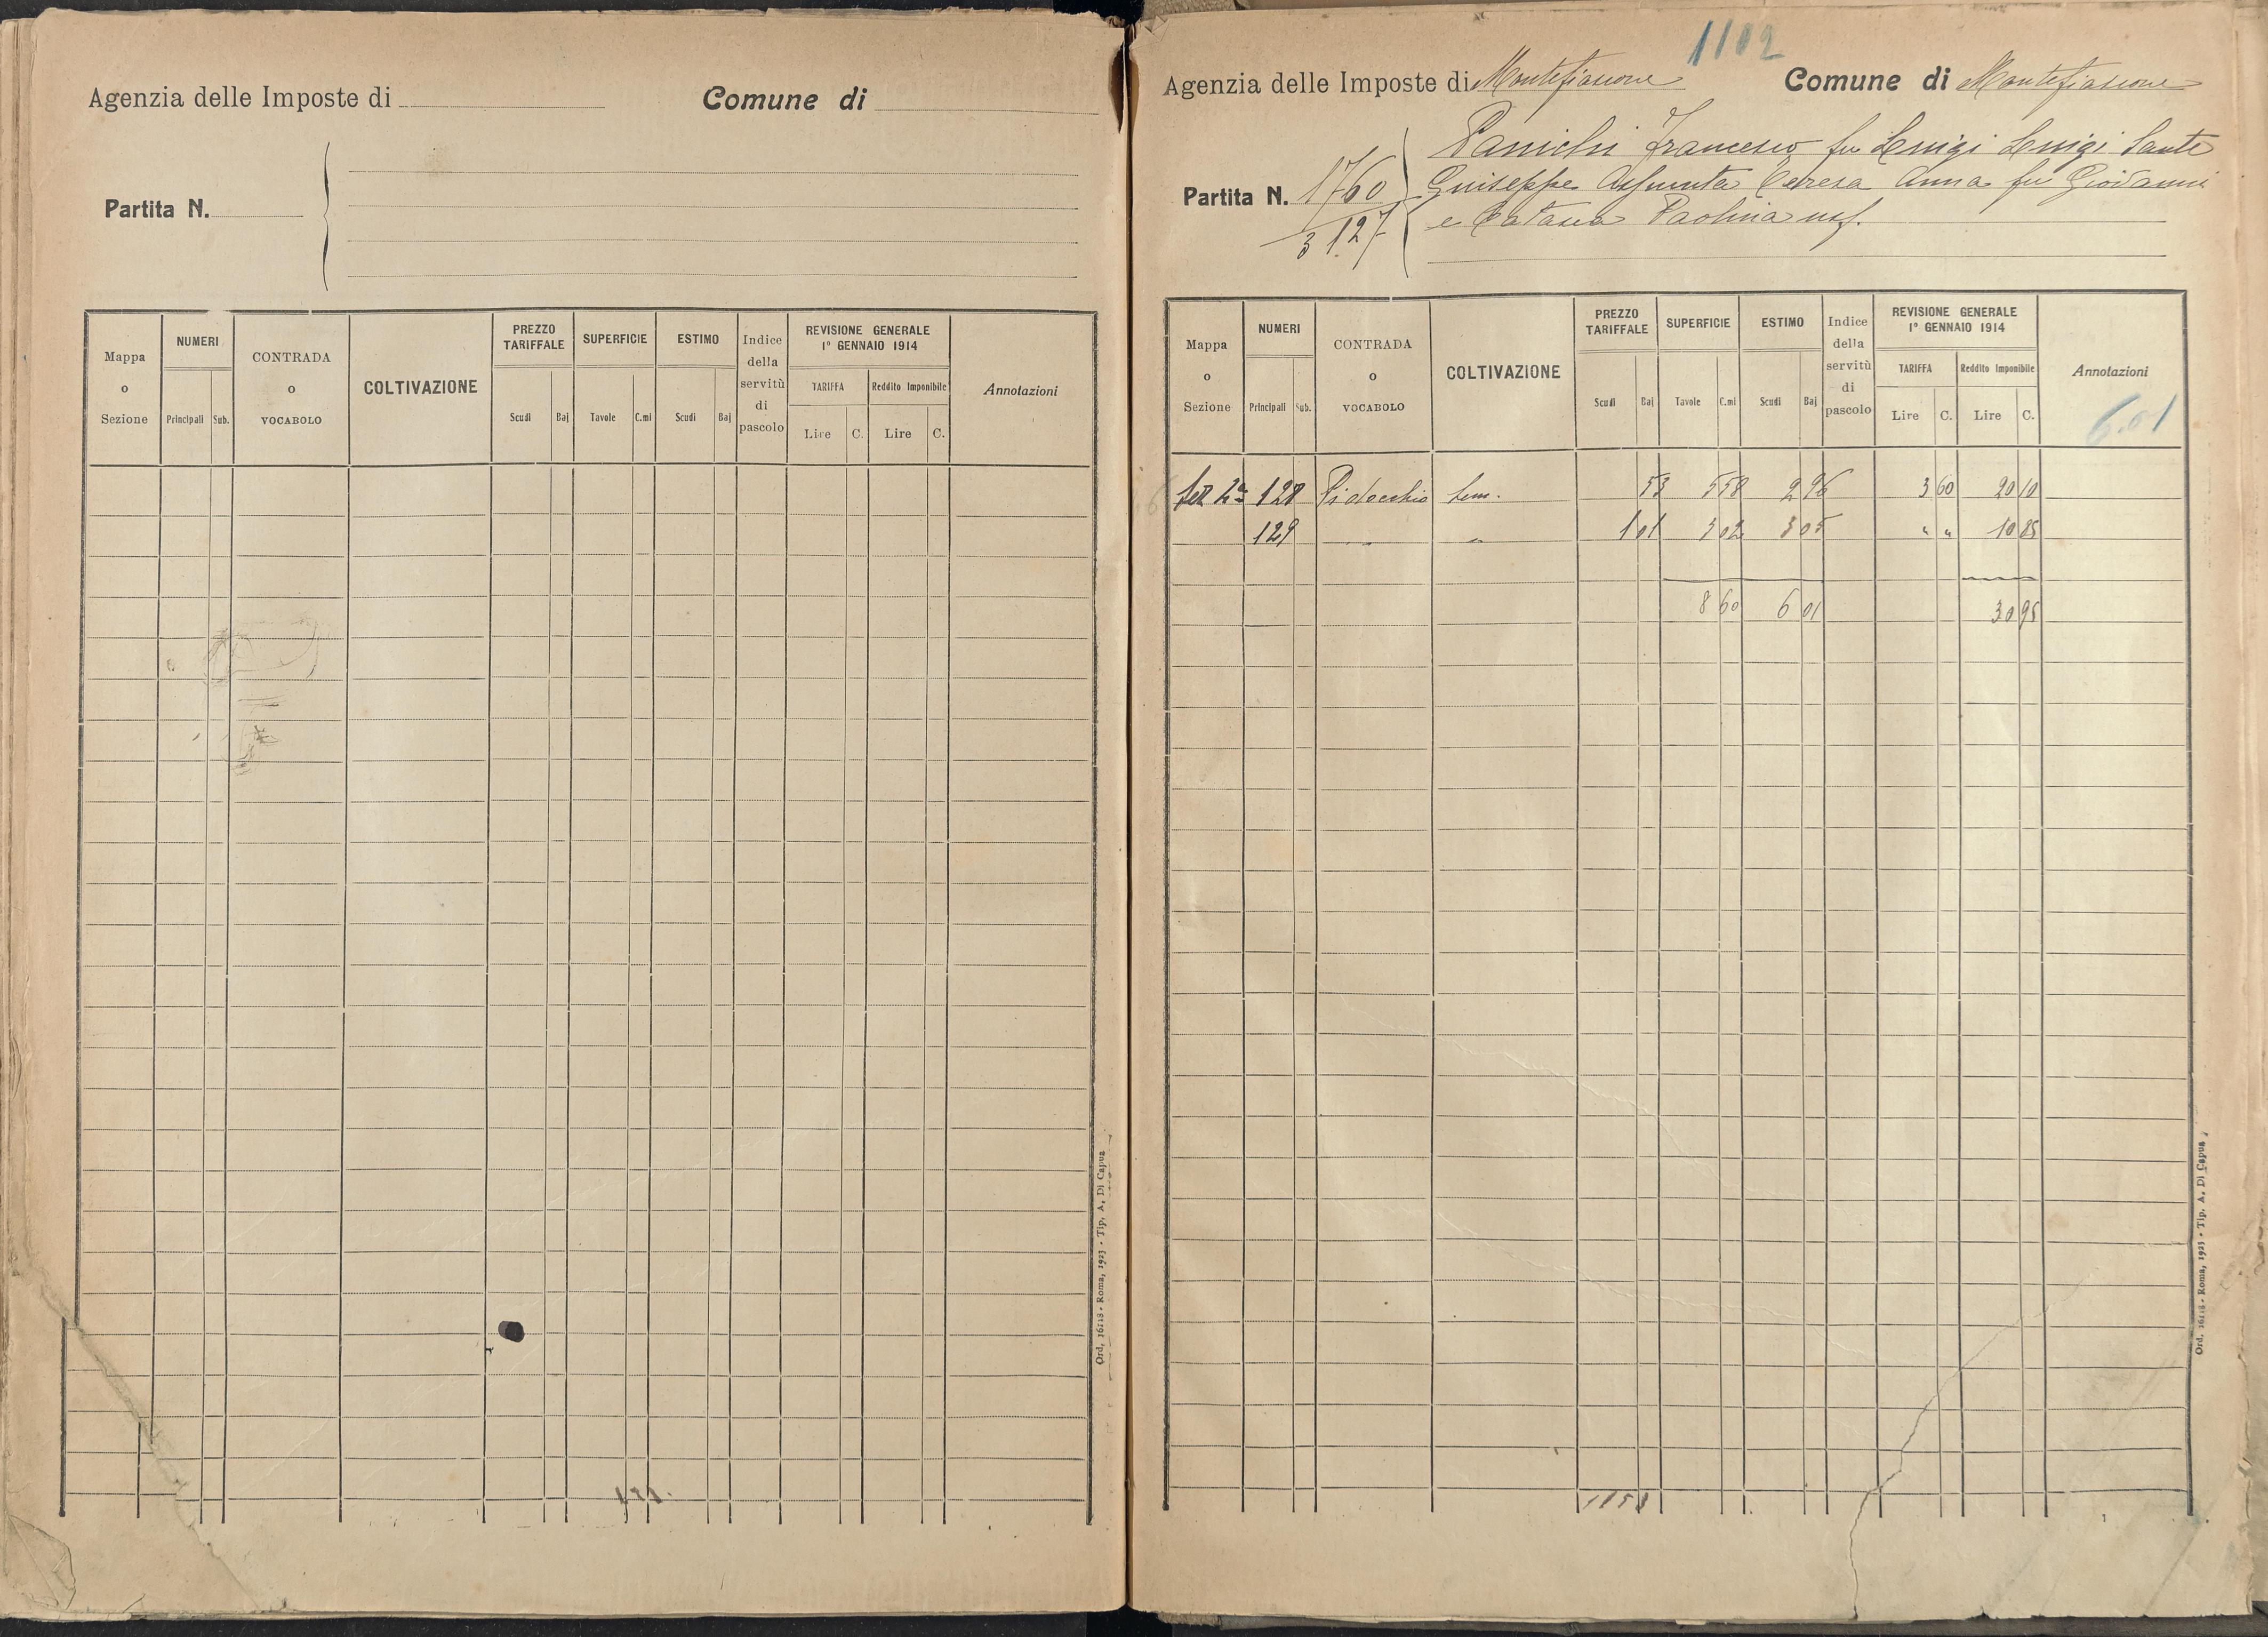 Agenzia delle Imposte di
Comune di
Partita N.
Mappa o Sezione
NUMERI
Principali Sub.
CONTRADA o VOCABOLO
COLTIVAZIONE
PREZZO TARIFFALE
Scudi Baj
SUPERFICIE
Tavole C.mi
ESTIMO
Scudi Baj
Indice della servitù di pascolo
REVISIONE GENERALE
1° GENNAIO 1914
TARIFFA Reddito Imponibile
Lire C. Lire C.
Annotazioni
Ord. 16118 - Roma, 1923 - Tip. A. Di Capua
1102
Agenzia delle Imposte di Montefiascone Comune di Montefiascone
Partita N. 1760
3127
Panichi Francesco fu Luigi Luigi Sante
Giuseppe Assunta Teresa Anna fu Giovanni
e Paolina usf.
Mappa o Sezione
NUMERI
Principali Sub.
CONTRADA o VOCABOLO
COLTIVAZIONE
PREZZO TARIFFALE
Scudi Baj
SUPERFICIE
Tavole C.mi
ESTIMO
Scudi Baj
Indice della servitù di pascolo
REVISIONE GENERALE
1° GENNAIO 1914
TARIFFA Reddito Imponibile
Lire C. Lire C.
Annotazioni
6.01
Sez 2a 128 Pidocchio Sem. 53 5 58 2 96 3 60 20 10
129 " " 1 01 3 02 3 05 " " 10 85
8 60 6 01 30 95
1858
Ord. 16118 - Roma, 1923 - Tip. A. Di Capua